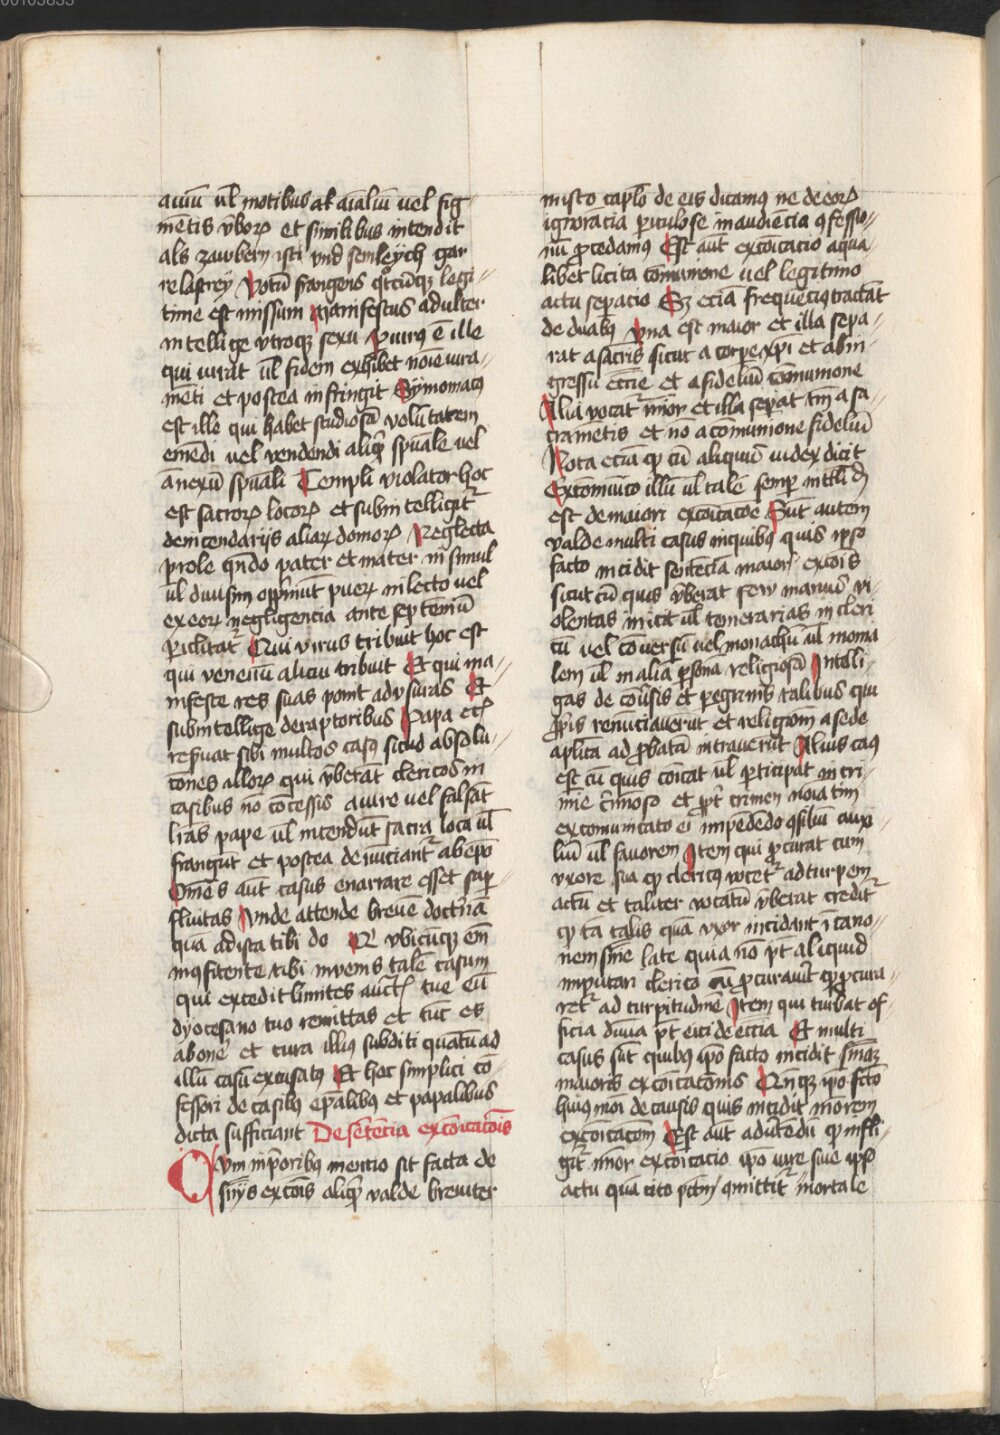 00103835
auiū uł motibus al' aīaliū uel fig-
mētis v̄boꝝ et similibus intendit
als zawbern isti vnd semleych gar
relastrey Votū frangens qͦtcūqꝫ legi-
time est missum Manifestus adulter
intellige vtroqꝫ sexu ꝑiurꝰ ē ille
qui iurat uł fidem exhibet noīe iura-
mēti et postea infringit Symoniacꝰ
est ille qui habet studiosā voluntatem
emēdi uel vendendi aliqͩ spūale uel
ānexū spūali Templi violator hoc
est sacroꝝ locoꝝ et subintelligitᷣ
de incendarijs aliaꝝ domoꝝ Neglecta
prole qn̄do pater et mater in simul
uł diuisim opp̄mūt pueꝝ in lecto uel
ex eoꝝ negligencia ante septeniū
ꝑiclitatᷣ Qui virus tribuit hoc est
qui venenū alicui tribuit Et qui ma-
nifeste res suas ponit ad vsuras Et
subintellige de raptoribus Papa etc̄
reẜuat sibi multos casꝰ sicud absolu-
cōnes illoꝝ qui v̄berāt clericos in
casibus nō cōcessis a iure uel falsāt
lrās pape uł incendūt sacra loca uł
frangūt et postea denūciantᷣ ab ep̄o
Omēs aūt casus enarrare esset suꝑ-
fluitas Vnde attende breuē doctr̄nā
quā ad ista tibi do Qͩ vbicūqꝫ eī
in ꝯfitente tibi inuenis talē casum
qui excedit limites auctͭis tue eū
dyocesano tuo remittas et tūc es
a bonē et cura illiꝰ subditi quātū ad
illū casū excusatꝰ Et hoc simplici cō-
fessori de casibꝰ ep̄alibꝰ et papalibus
dicta sufficiant De sn̄tēcia excōicacōis
Cvm in p̄oribꝰ mentio sit facta de
sn̄ijs excōis aliqͩ valde breuiter
in isto caplo de eis dicamꝰ ne de eoꝝ
ignorācia ꝑiculose in audiēcia ꝯfessio-
nū ꝓcedamꝰ Est aūt excōicacio a qua-
libet licita cōmunione uel legitimo
actu seꝑacio Sꝫ eciā frequēciꝰ tractāt
de duabꝰ Vna est maior et illa sepa-
rat a sacris sicut a corꝑe xp̄i et ab in-
gressu ecc̄ie et a fideliū cōmunione
Alia vocatᷣ mīor et illa seꝑat tm̄ a sa-
cramētis et nō a cōmunione fideliū
Nota eciā qͩ cū aliquis iudex dicit
Excōmunico illū uł talē semꝑ intłlꝺm
est de maiori excōicacōe Sūt autem
valde multi casus in quibꝰ quis ipso
facto incidit sentēciā maior̄ excōis
sicut cū quis v̄berat seu manꝰ vi-
olentas inicit uł temerarias in cleri-
cū uel cōuersū uel monachū uł monia-
lem uł in aliā ꝑsonā religiosā Intelli-
gas de cōūsis et ꝑegrinis talibus qui
ꝓpͥis renūciauerūt et religiōm a sede
aplica ad ꝓbatā intrauerūt Alius casꝰ
est cū quis cōicat uł ꝑticipat in cri-
mīe c̄minoso et ꝓpt̄ crimen noīatim
excōmunicato ei impēdēdo ꝯsiliū auxi-
liū uł fauorem Item qui ꝓcurat cum
vxore sua qͩ clericꝰ vocetᷣ ad turpem
actū et taliter vocatū v̄berat creditᷣ
qͩ tā talis quā vxor incidant ī cano-
nem sn̄ie late quia nō pt̄ aliquid
imputari clerico cū ꝓcurauit qͩ ꝓcura-
retᷣ ad turpitudinē Item qui turbat of-
ficia diuīa pt̄ eici de ecc̄ia Et multi
casus sūt quibꝰ ipō facto incidit sn̄iaꝫ
maioris excōicacōnis Qn̄cūqꝫ ipō fc̄to
huiꝰmōi de causis quis incidit mīorem
excōicacōm Est aūt aduertēdū qͩ infli-
gitᷣ mīor excōicacio ipō iure siue ipso
actu quā cito pctm̄ ꝯmittitᷣ mortale